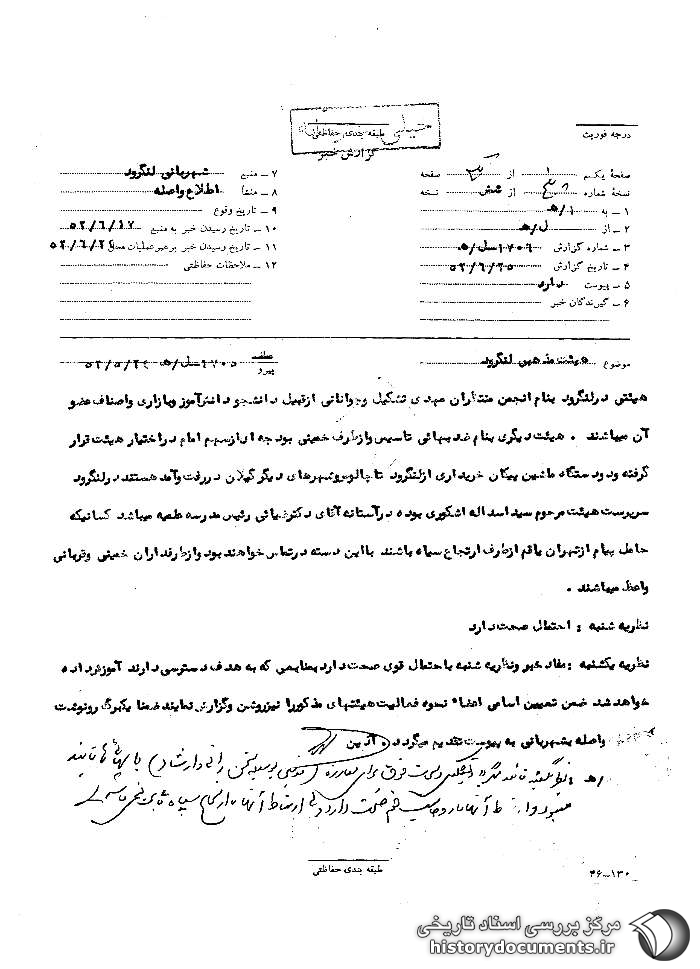 درجه فوریت
خیلی
طبقه بندی حفاظتی
گزارش خبر
صفحهٔ یکم ۱ از یک صفحه
نسخهٔ شماره از شش نسخه
۱ ـ به ۱/ه
۲ ـ از ل/ه
۳ ـ شماره گزارش ۱۷۰۶/ل/ه
۴ ـ تاریخ گزارش ۵۲/۶/۲۵
۵ ـ پیوست دارد
۶ ـ گیرندگان خبر
۷ ـ منبع شهربانی لنگرود
۸ ـ منشأ اطلاع واصله
۹ ـ تاریخ وقوع
۱۰ ـ تاریخ رسیدن خبر به منبع ۵۲/۶/۱۷
۱۱ ـ تاریخ رسیدن خبر برهبر عملیات محل ۵۲/۶/۲۴
۱۲ ـ ملاحظات حفاظتی
موضوع هیئت مذهبی لنگرود
عطف
پیرو
۱۷۰۵/ل/ه ـ ۵۲/۵/۲۴
هیئتی درلنگرود بنام انجمن منتظران مهدی تشکیل وجوانانی ازقبیل دانشجو دانش‌آموز وبازاری واصناف عضو
آن میباشند . هیئت دیگری بنام ضد بهائی تاسیس وازطرف خمینی بودجه ای ازسهم امام دراختیار هیئت قرار
گرفته ودودستگاه ماشین پیکان خریداری ازلنگرود تا چالوس وشهرهای دیگرگیلان دررفت وآمد هستند درلنگرود
سرپرست هیئت مرحوم سید اسداله اشکوری بوده درآستانه آقای دکترضیائی رئیس مدرسه علمیه میباشد کسانیکه
حامل پیام ازتهران یاقم ازطرف ارتجاع سیاه باشند بااین دسته درتماس خواهند بود وازطرفداران خمینی وقربانی
واعظ میباشند .
نظریه شنبه : احتمال صحت دارد
نظریه یکشنبه : مفاد خبر ونظریه شنبه باحتمال قوی صحت دارد بمنابعی که به هدف دسترسی دارند آموزش داده
خواهد شد ضمن تعیین اسامی اعضاء نحوه فعالیت هیئتهای مذکور را نیزروشن وگزارش نمایند ضمنا یکبرگ رونوشت
واصله بشهربانی به پیوست تقدیم میگردد . آذین
۱/ه : فوق برای مبارزه با بهائی
آنها با روحانیت قم صحت دارد ولی ارتباط آنها با ارتجاع سیاه
طبقه بندی حفاظتی
۴۶ـ۱۳۰
مرکز بررسی اسناد تاریخی
historydocuments.ir